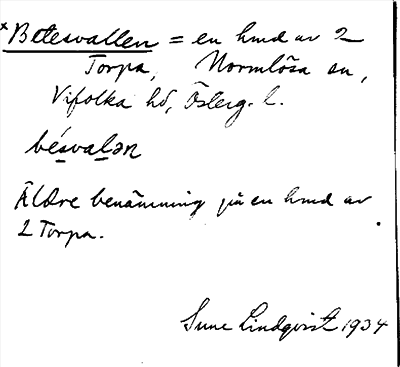 × Betesvallen = en hmd av 2
Torpa, Normlösa sn,
Vifolka hd, Österg. l.
bésvalən
Äldre benämning på en hmd av
2 Torpa.
Sune Lindqvist 1934